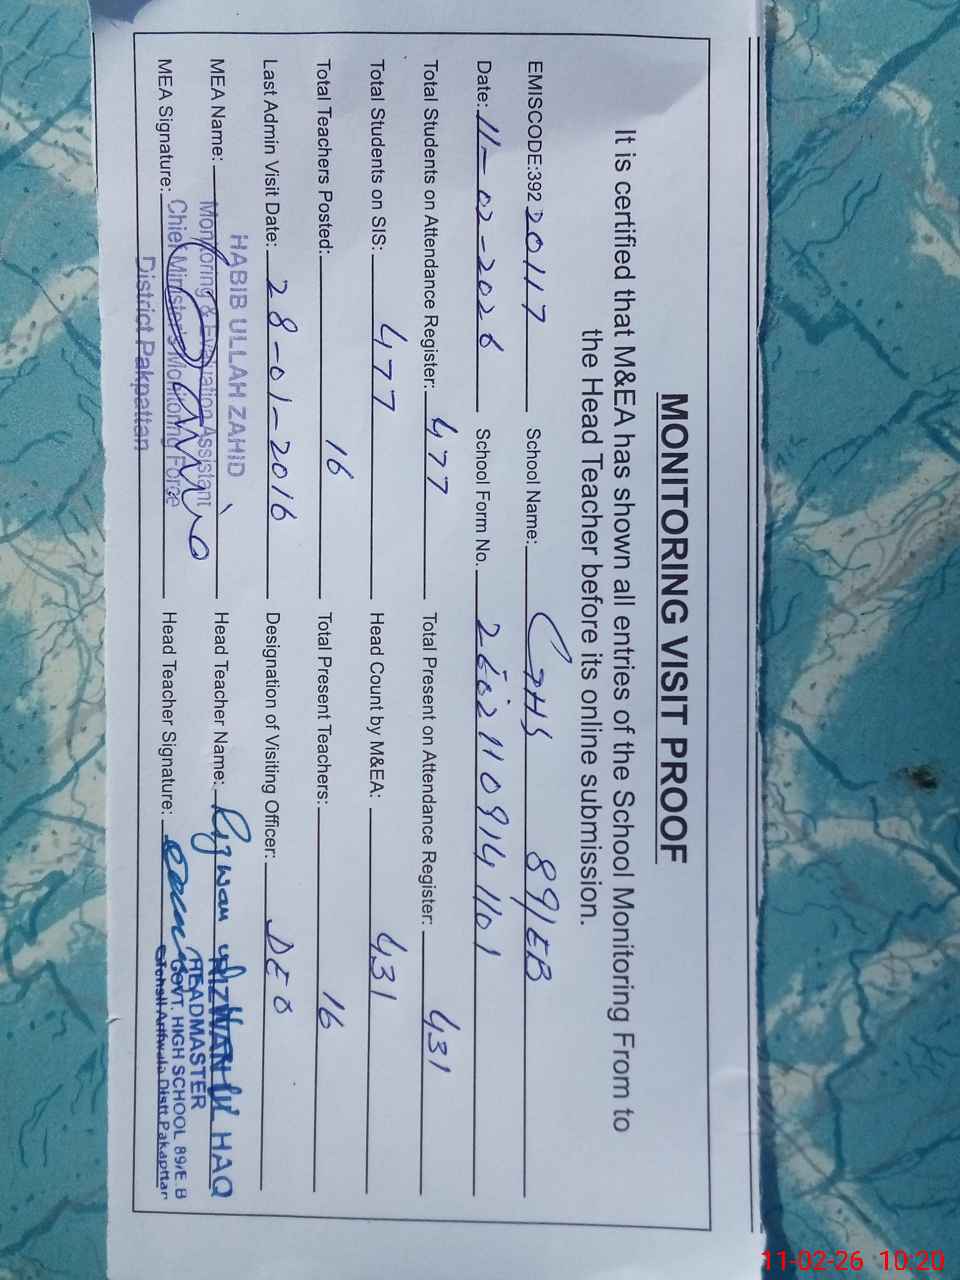 MONITORING VISIT PROOF
It is certified that M&EA has shown all entries of the School Monitoring From to
the Head Teacher before its online submission.
EMISCODE:392 20117 School Name: GHS 89/EB
Date: 11-02-2026 School Form No. 26021109141101
Total Students on Attendance Register: 477 Total Present on Attendance Register: 431
Total Students on SIS: 477 Head Count by M&EA: 431
Total Teachers Posted: 16 Total Present Teachers: 16
Last Admin Visit Date: 28-01-2016 Designation of Visiting Officer: DEO
HABIB ULLAH ZAHID
MEA Name: Monitoring & Evaluation Assistant Head Teacher Name: Rizwan ul
RIZWAN UL HAQ
HEADMASTER
MEA Signature: Chief Minister's Monitoring Force Head Teacher Signature:
GOVT. HIGH SCHOOL 89/E.B
Tehsil Arifwala Distt.Pakapttan
District Pakpattan
11-02-26 10:20